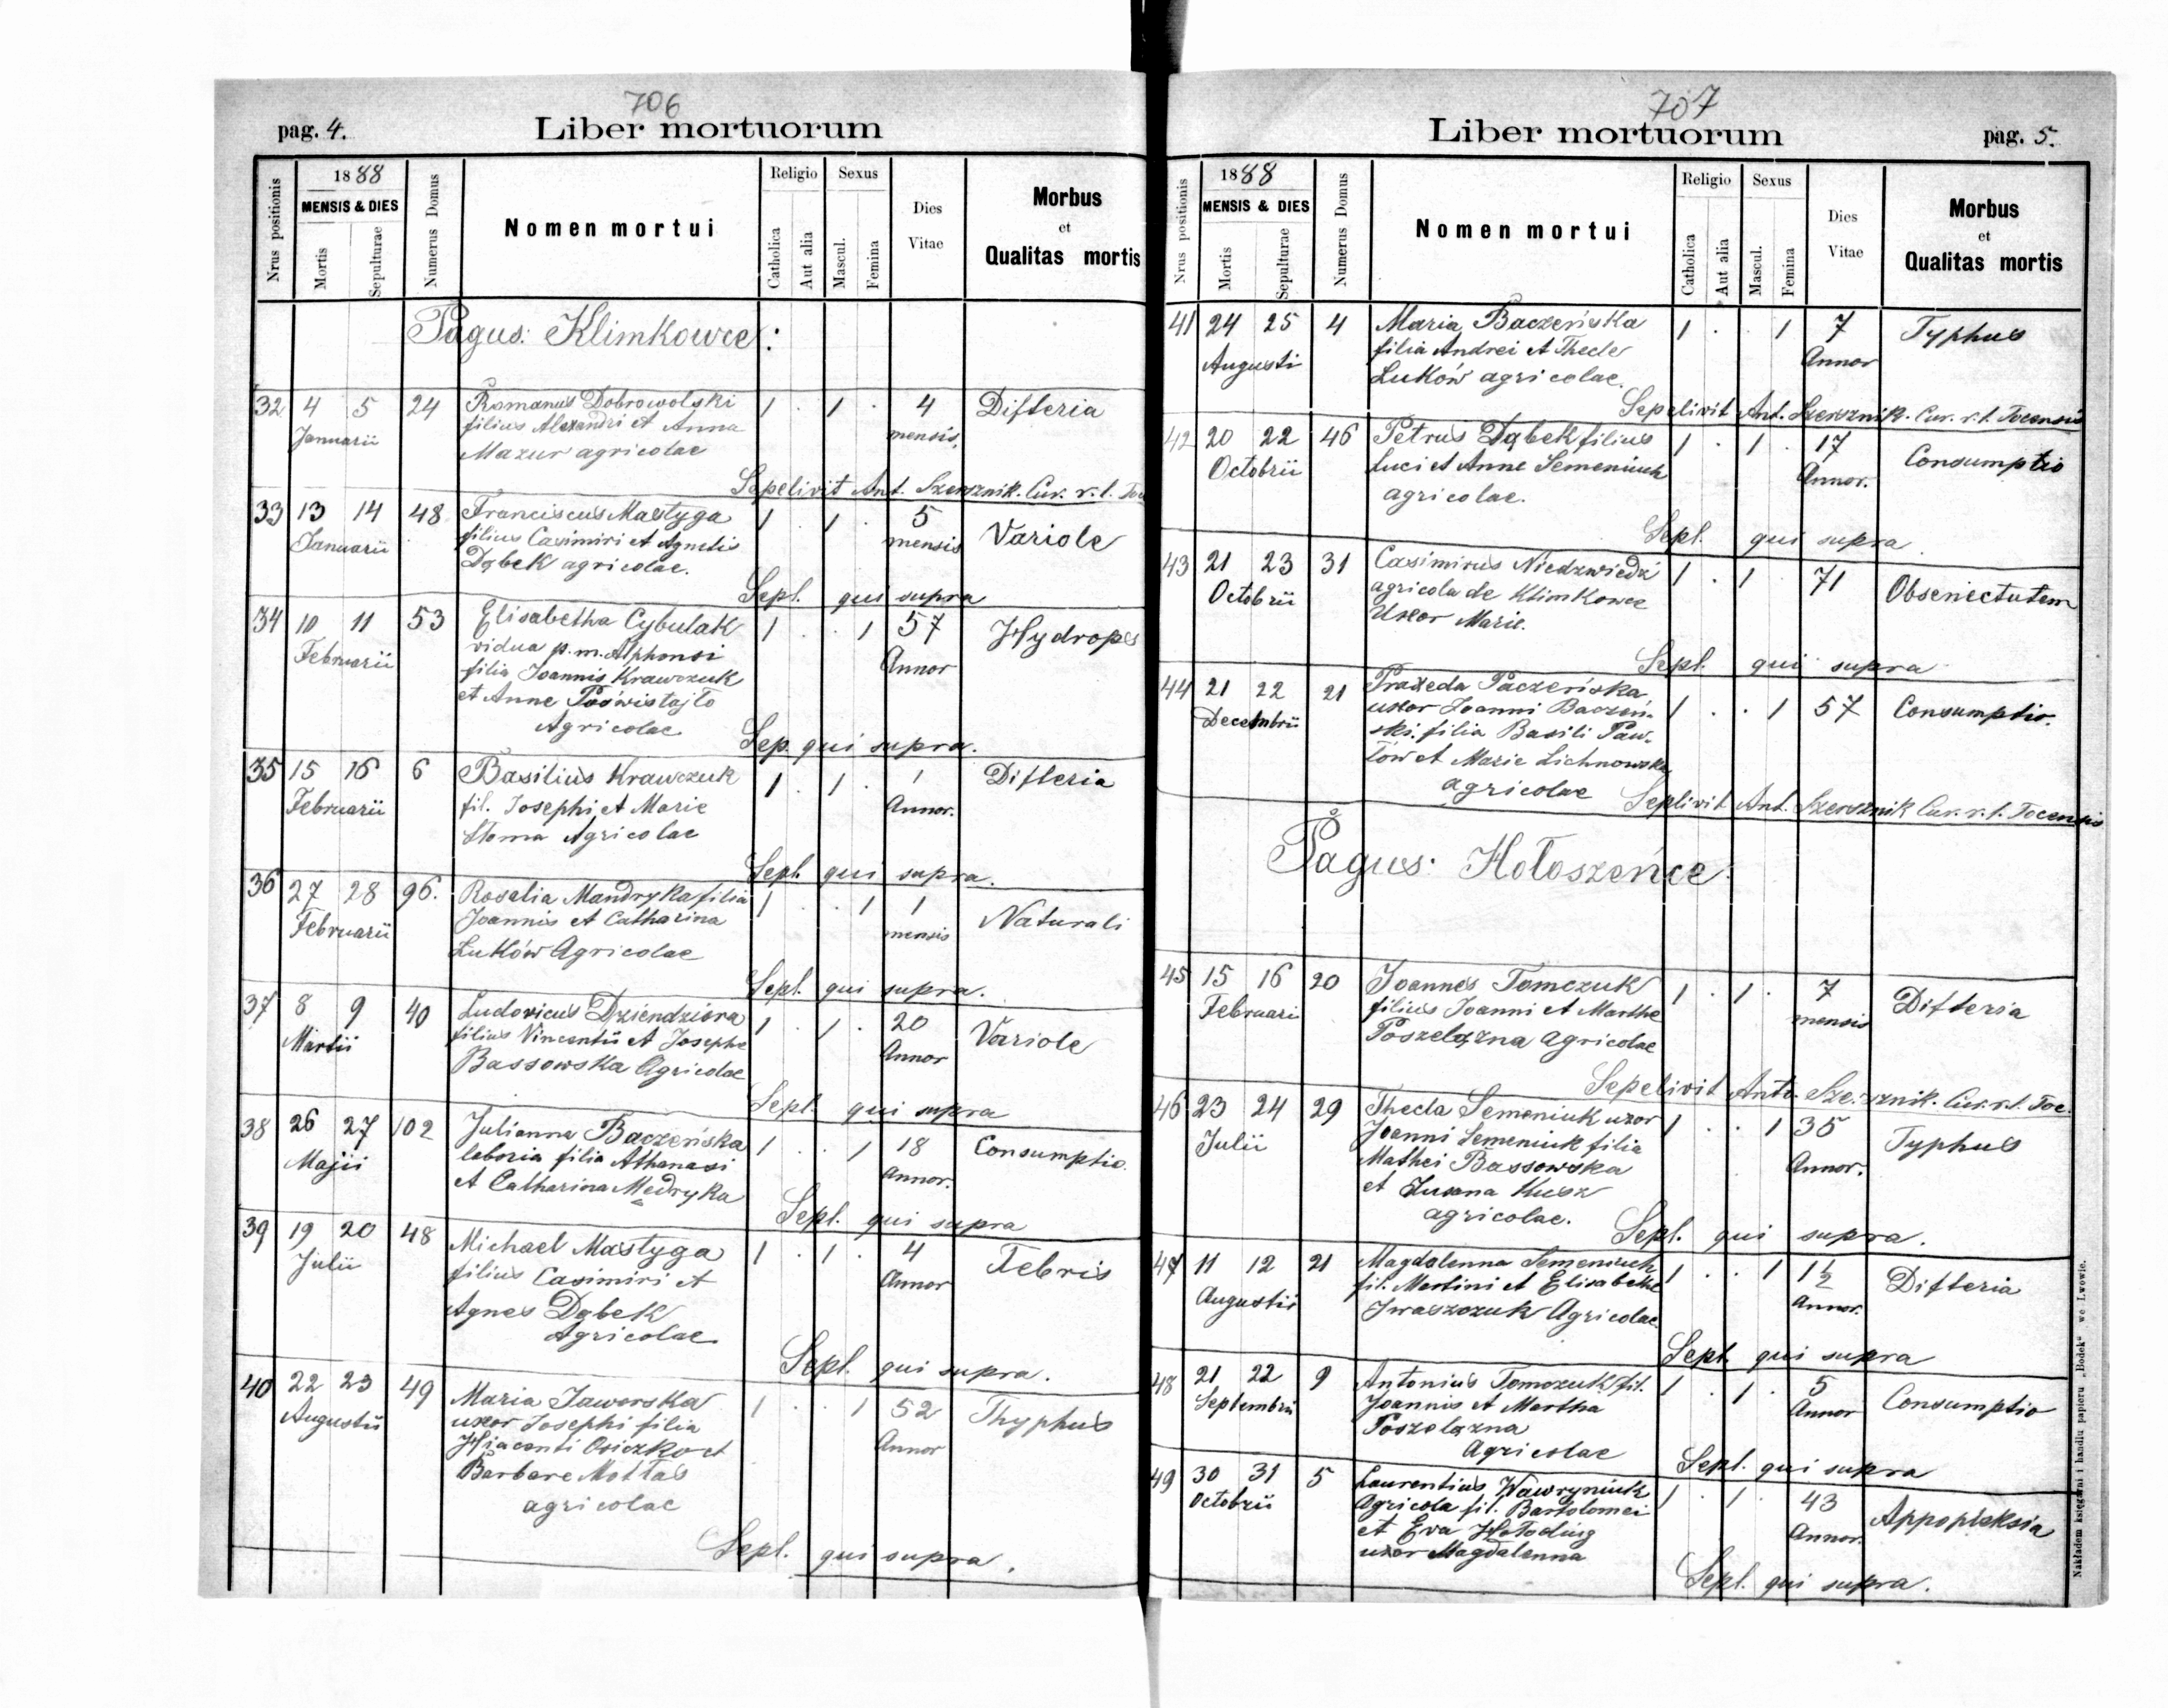 706
pag. 4.
Liber mortuorum
Nrus positionis
1888
MENSIS & DIES
Mortis
Sepulturae
Numerus Domus
Nomen mortui
Religio
Catholica
Aut alia
Sexus
Mascul.
Femina
Dies
Vitae
Morbus
et
Qualitas mortis
Pagus: Klimkowce:
32 4 5 24 Romanus Dobrowolski 1 . 1 . 4 Difteria
Januarii filius Alexandri et Anna mensis.
Mazur agricolae
Sepelivit Ant. Szersznik. Cur. r. l. Toc
33 13 14 48 Franciscus Mastyga 1 . 1 . 5 Variole
Januarii filius Casimiri et Agnetis mensis
Dąbek agricolae.
Sepl. qui supra
34 10 11 53 Elisabetha Cybulak 1 . . 1 57 Hydrops
Februarii vidua p. m. Alphonsi Annor
filia Joannis Krawczuk
et Anne Poświstajło
Agricolae
Sep. qui supra.
35 15 16 6 Basilius Krawczuk 1 . 1 . 1 Difteria
Februarii fil. Josephi et Marie Annor.
Słoma Agricolae
Sepl. qui supra.
36 27 28 96. Rosalia Mandryka filia 1 . . 1 1 Naturali
Februarii Joannis et Catharina mensis
Lutków Agricolae
Sepl. qui supra.
37 8 9 40 Ludovicus Dziendziora 1 . 1 . 20 Variole
Martii filius Vincentii et Josephe Annor
Bassowska Agricolae
Sepl. qui supra
38 26 27 102 Julianna Baczeńska 1 . . 1 18 Consumptio.
Majii laboria filia Athanasi Annor.
et Catharina Mędryka
Sepl. qui supra
39 19 20 48 Michael Mastyga 1 . 1 . 4 Febris
Julii filius Casimiri et Annor
Agnes Dąbek
Agricolae.
Sepl. qui supra.
40 22 23 49 Maria Jaworska 1 . . 1 52 Thyphus
Augustii uxor Josephi filia Annor
Hiacenti Osiczko et
Barbare Mottas
agricolae
Sepl. qui supra.
707
Liber mortuorum
pag. 5.
Nrus positionis
1888
MENSIS & DIES
Mortis
Sepulturae
Numerus Domus
Nomen mortui
Religio
Catholica
Aut alia
Sexus
Mascul.
Femina
Dies
Vitae
Morbus
et
Qualitas mortis
41 24 25 4 Maria Baczeńska 1 . . 1 7 Typhus
Augusti filia Andrei et Thecle Annor
Luków agricolae.
Sepelivit Ant. Szersznik. Cur. r. l. Tocensis
42 20 22 46 Petrus Dąbek filius 1 . 1 . 17 Consumptio
Octobrii Luci et Anne Semeniuk Annor.
agricolae.
Sepl. qui supra.
43 21 23 31 Casimirus Niedzwiedź 1 . 1 . 71 Obsenectutem
Octobrii agricola de Klimkowce
Uxor Marie.
Sepl. qui supra
44 21 22 21 Praxeda Paczeńska 1 . . 1 57 Consumptio.
Decembrii uxor Joanni Baczeń-
ski. filia Basili Paw-
łów et Marie Lichnowska
agricolae
Seplivit Ant. Szersznik Cur. r. l. Tocensis
Pagus: Hołoszeńce.
45 15 16 20 Joannes Tomczuk 1 . 1 . 7 Difteria
Februari filius Joanni et Marthe mensis
Poszelązna agricolae
Sepelivit Anto. Szersznik. Cur. r. l. Toc.
46 23 24 29 Thecla Semeniuk uxor 1 . . 1 35 Typhus
Julii Joanni Semeniuk filia Annor.
Mathei Bassowska
et Zusana Kusz
agricolae.
Sepl. qui supra.
47 11 12 21 Magdalenna Semeniuk 1 . . 1 1½ Difteria
Augustii fil. Martini et Elisabethe Annor.
Iwaszczuk Agricolae.
Sepl. qui supra
48 21 22 9 Antonius Tomczuk fil. 1 . 1 . 5 Consumptio
Septembrii Joannis et Martha Annor
Poszelązna
Agricolae
Sepl. qui supra
49 30 31 5 Laurentius Wawryniuk 1 . 1 . 43 Appopleksia
Octobrii Agricola fil. Bartolomei Annor.
et Eva Hołoding
uxor Magdalenna
Sepl. qui supra.
Nakładem księgarni i handlu papieru „Bodek“ we Lwowie.